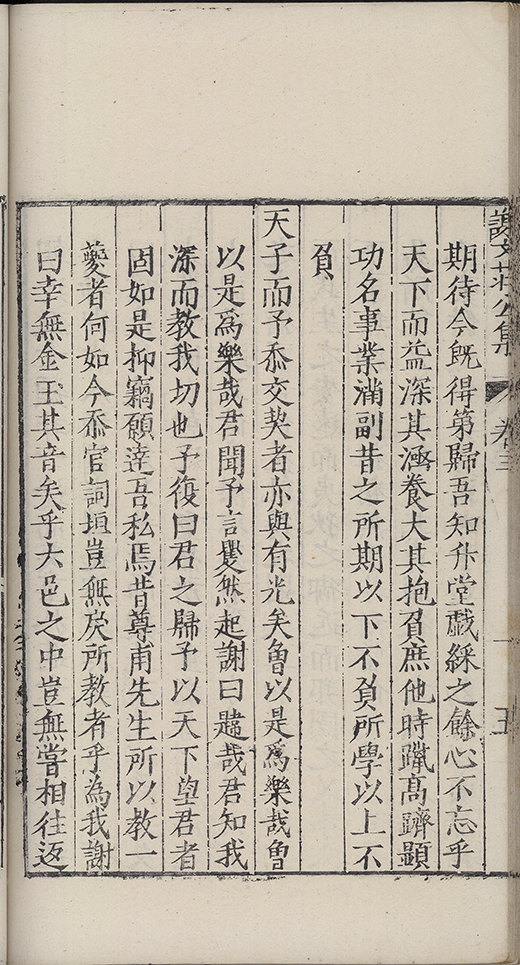 謝文莊公集 卷三 五
期待今既得第歸吾知升堂戲綵之餘心不忘乎
天下而益深其涵養大其抱負庶他時躐髙躋顯
功名事業滿副昔之所期以下不負所學以上不
負
天子而予忝交契者亦與有光矣魯以是爲樂哉魯
以是爲樂哉君聞予言矍然起謝曰韙哉君知我
深而教我切也予復曰君之歸予以天下望君者
固如是抑竊願逹吾私焉昔尊甫先生所以教一
夔者何如今忝官詞垣豈無戾所教者乎為我謝
曰幸無金玉其音矣乎大邑之中豈無嘗相往返